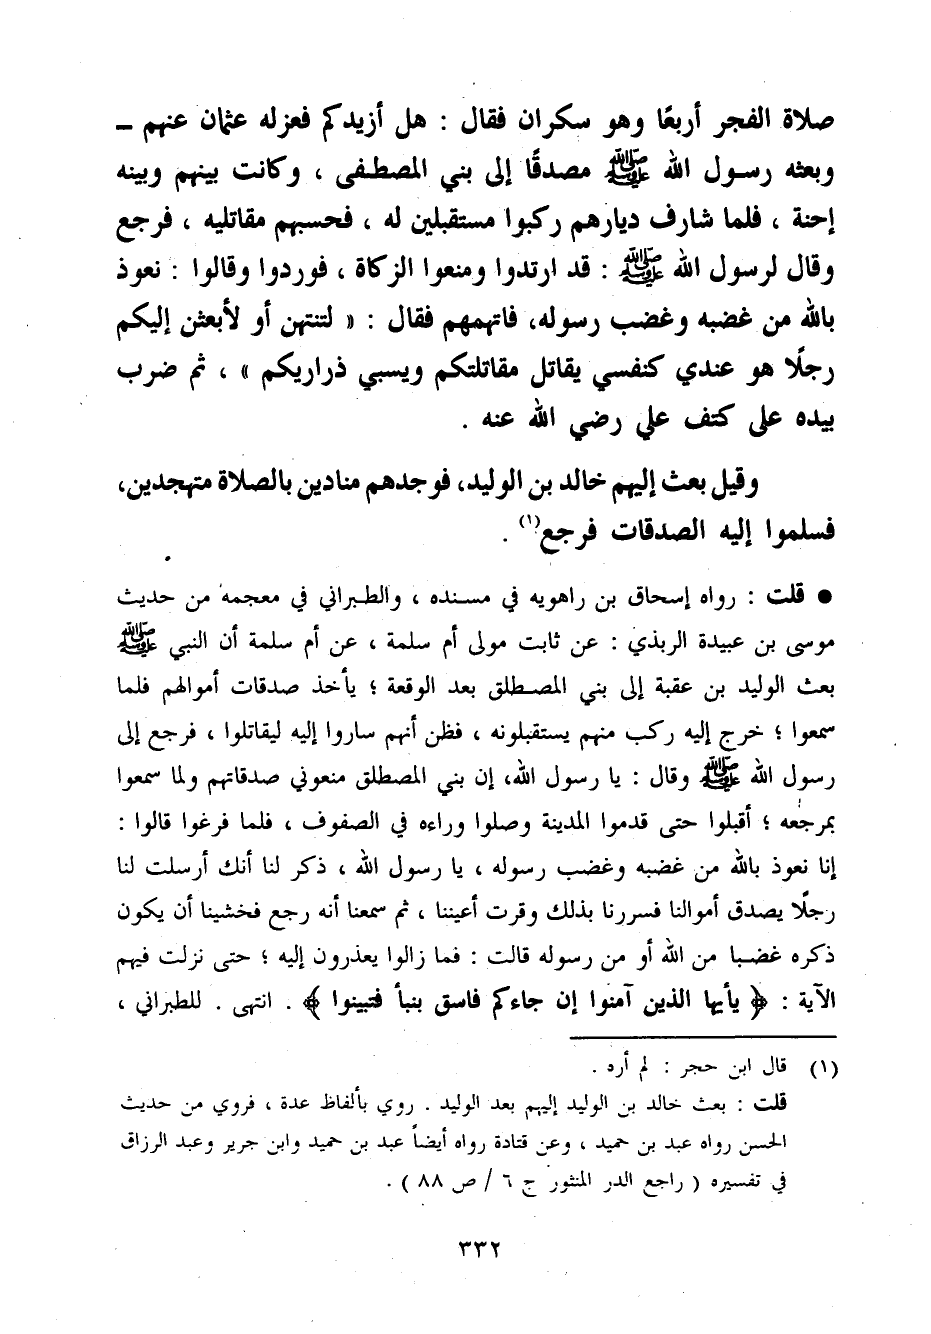 صلاة الفجر أربعًا وهو سكران فقال : هل أزيدكم فعزله عثمان عنهم ــ
وبعثه رسول الله ﷺ مصدقًا إلى بني المصطفى ، وكانت بينهم وبينه
إحنة ، فلما شارف ديارهم ركبوا مستقبلين له ، فحسبهم مقاتليه ، فرجع
وقال لرسول الله ﷺ : قد ارتدوا ومنعوا الزكاة ، فوردوا وقالوا : نعوذ
بالله من غضبه وغضب رسوله، فاتهمهم فقال : « لتنتهن أو لأبعثن إليكم
رجلًا هو عندي كنفسي يقاتل مقاتلتكم ويسبي ذراريكم » ، ثم ضرب
بيده على كتف علي رضي الله عنه .
وقيل بعث إليهم خالد بن الوليد، فوجدهم منادين بالصلاة متهجدين،
فسلموا إليه الصدقات فرجع(١) .
● قلت : رواه إسحاق بن راهويه في مسنده ، والطبراني في معجمه من حديث
موسى بن عبيدة الربذي : عن ثابت مولى أم سلمة ، عن أم سلمة أن النبي ﷺ
بعث الوليد بن عقبة إلى بني المصطلق بعد الوقعة ؛ يأخذ صدقات أموالهم فلما
سمعوا ؛ خرج إليه ركب منهم يستقبلونه ، فظن أنهم ساروا إليه ليقاتلوا ، فرجع إلى
رسول الله ﷺ وقال : يا رسول الله، إن بني المصطلق منعوني صدقاتهم ولما سمعوا
بمرجعه ؛ أقبلوا حتى قدموا المدينة وصلوا وراءه في الصفوف ، فلما فرغوا قالوا :
إنا نعوذ بالله من غضبه وغضب رسوله ، يا رسول الله ، ذكر لنا أنك أرسلت لنا
رجلًا يصدق أموالنا فسررنا بذلك وقرت أعيننا ، ثم سمعنا أنه رجع فخشينا أن يكون
ذكره غضبا من الله أو من رسوله قالت : فما زالوا يعذرون إليه ؛ حتى نزلت فيهم
الآية : ﴿ يأيها الذين آمنوا إن جاءكم فاسق بنبأ فتبينوا ﴾ . انتهى . للطبراني ،
(١) قال ابن حجر : لم أره .
قلت : بعث خالد بن الوليد إليهم بعد الوليد . روي بألفاظ عدة ، فروي من حديث
الحسن رواه عبد بن حميد ، وعن قتادة رواه أيضاً عبد بن حميد وابن جرير وعبد الرزاق
في تفسيره ( راجع الدر المنثور ج ٦ / ص ٨٨ ) .
٣٣٢